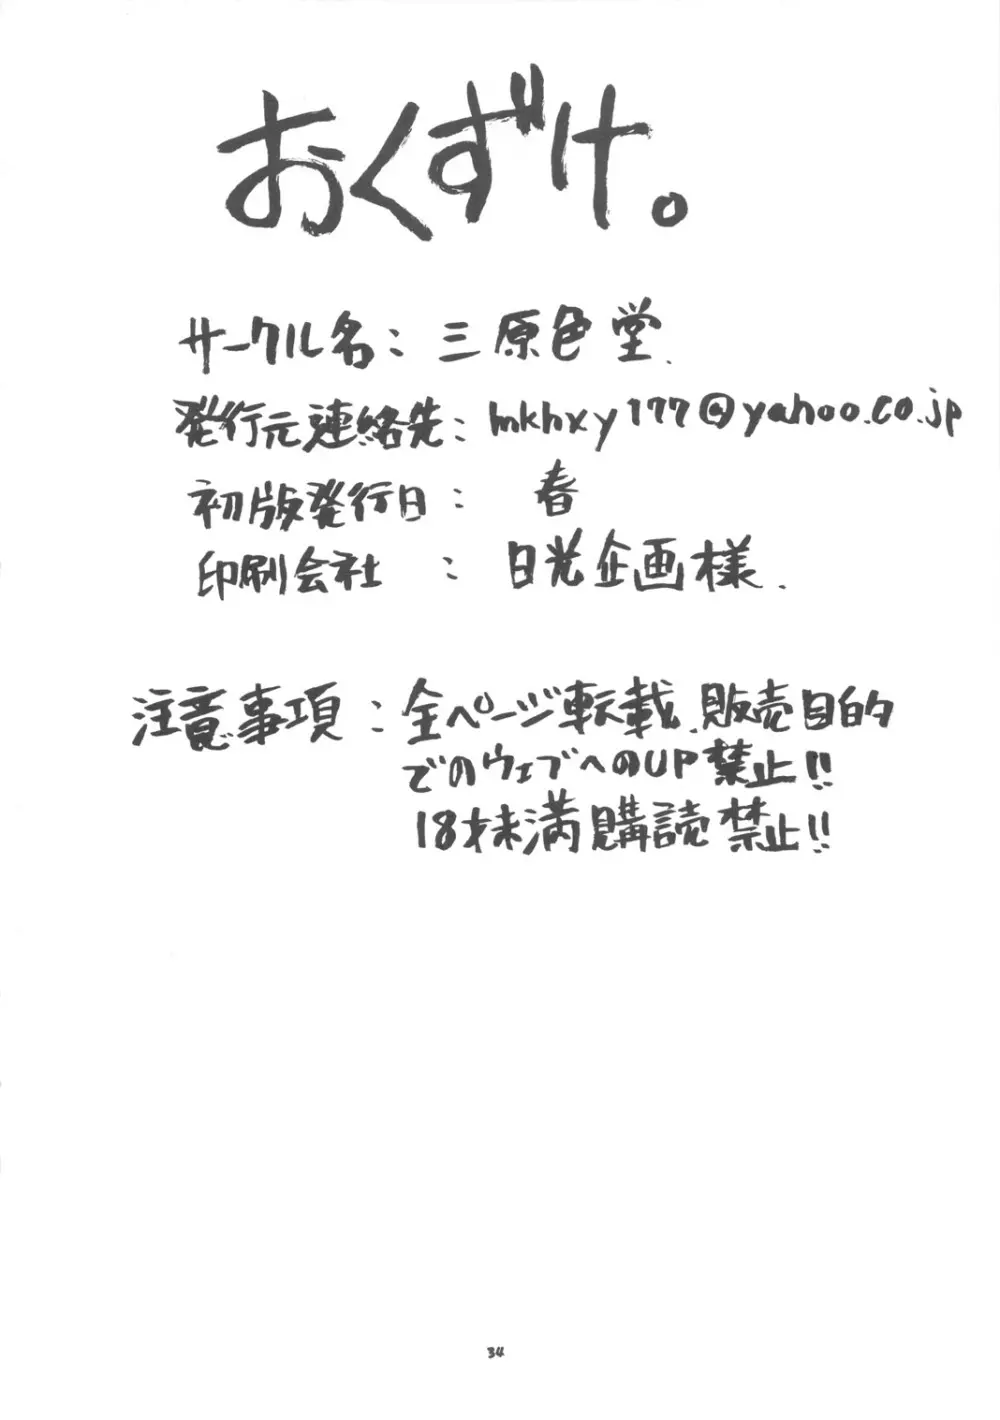 おくずけ。
サークル名：三原色堂.
発行元連絡先：mkhxy177@yahoo.co.jp
初版発行日： 春
印刷会社 ： 日光企画様.
注意事項：全ページ転載、販売目的
でのウェブへのUP禁止!!
18才未満購読禁止!!
34